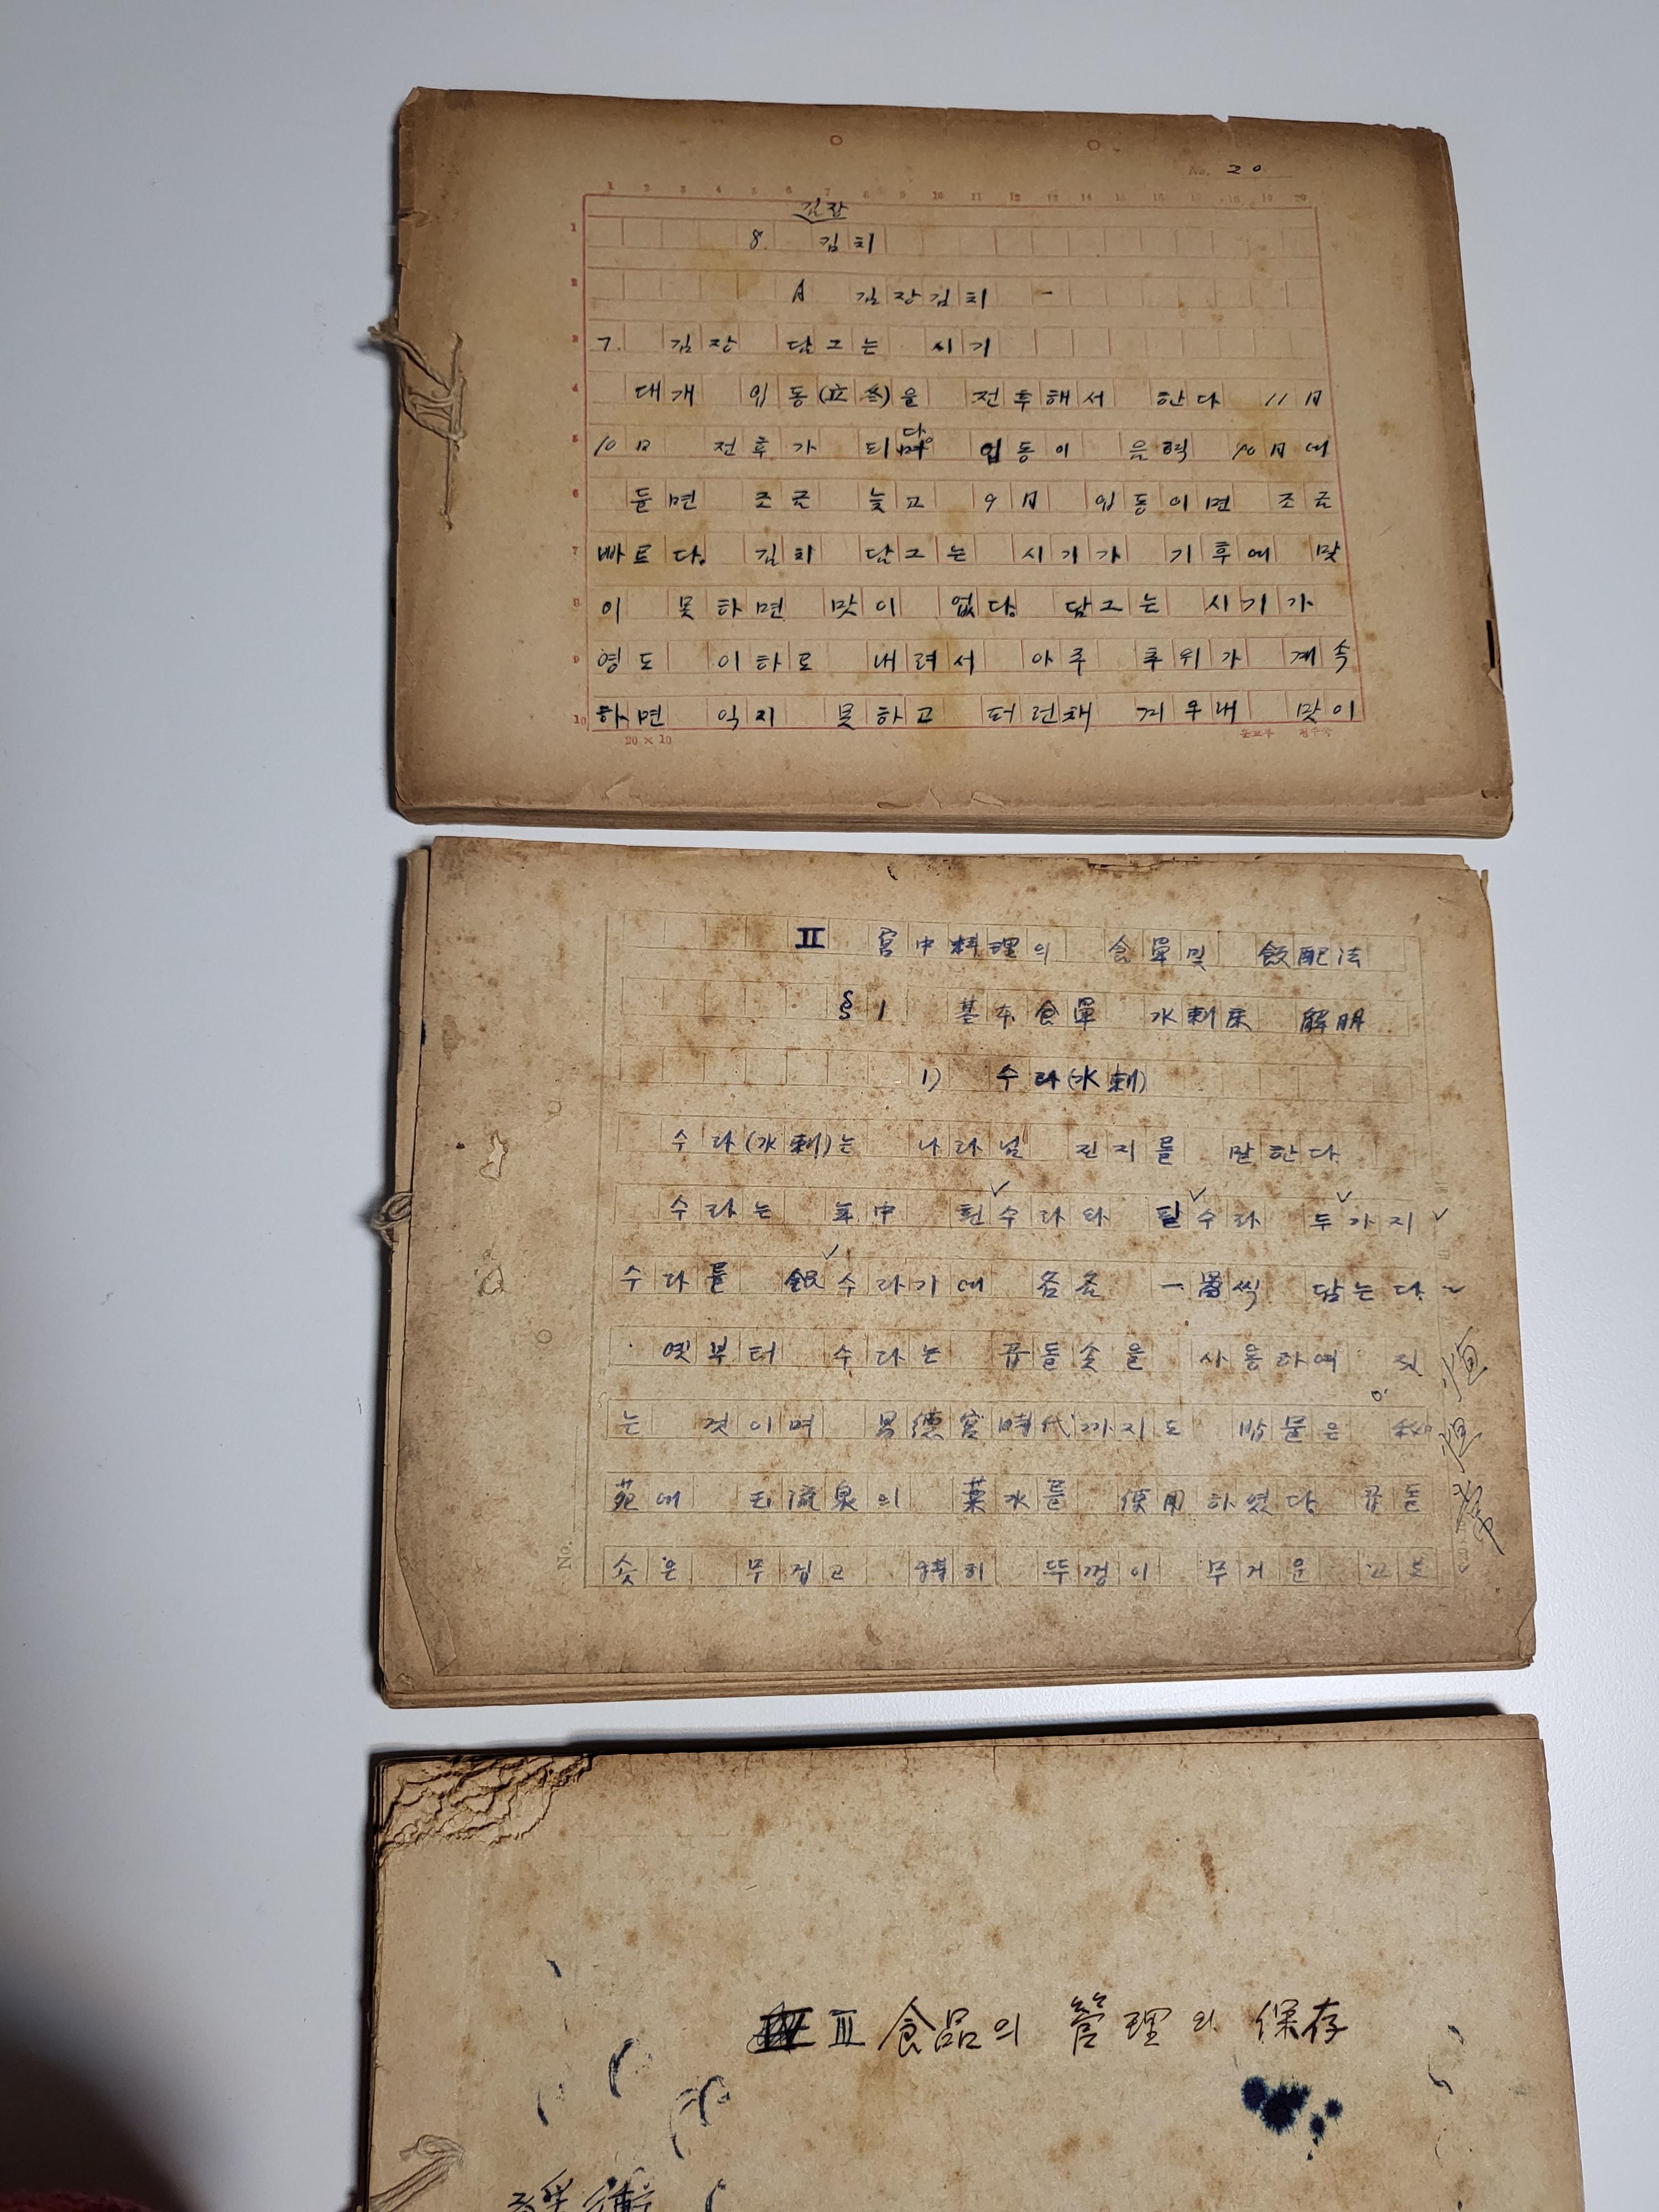 No. 20
1 2 3 4 5 6 7 8 9 10 11 12 13 14 15 16 17 18 19 20
김장
1 8. 김치
2 A 김장김치 -
3 ㄱ. 김장 담그는 시기
4 대개 입동(立冬)을 전후해서 한다 11月
5 10日 전후가 되다。 입동이 음력 10月에
6 들면 조금 늦고 9月 입동이면 조금
7 빠르다. 김치 담그는 시기가 기후에 맞
8 이 못하면 맛이 없다. 담그는 시기가
9 영도 이하로 내려서 아주 추위가 계속
10 하면 익지 못하고 터런채 겨우내 맛이
20 × 10 문교부 편수국
Ⅱ 宮中料理의 食單및 飮配法
§1 基本食單 水刺床 解明
1) 수라(水刺)
수라(水刺)는 나라님 진지를 말한다.
수라는 年中 흰수라와 팥수라 두가지
수라를 銀수라기에 各各 一器씩 담는다.
옛부터 수라는 곱돌솥을 사용하여 짓
는 것이며 昌德宮時代까지도 밥물은 秘
苑에 玉流泉의 藥水를 使用하였다. 곱돌
솥은 무겁고 特히 뚜껑이 무거운 고로
No.
Ⅲ 食品의 管理와 保存